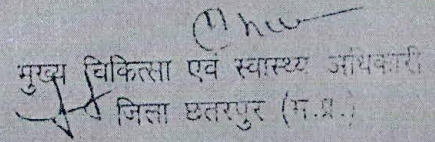 मुख्य चिकित्सा एवं स्वास्थ्य अधिकारी
जिला छतरपुर (म.प्र.)